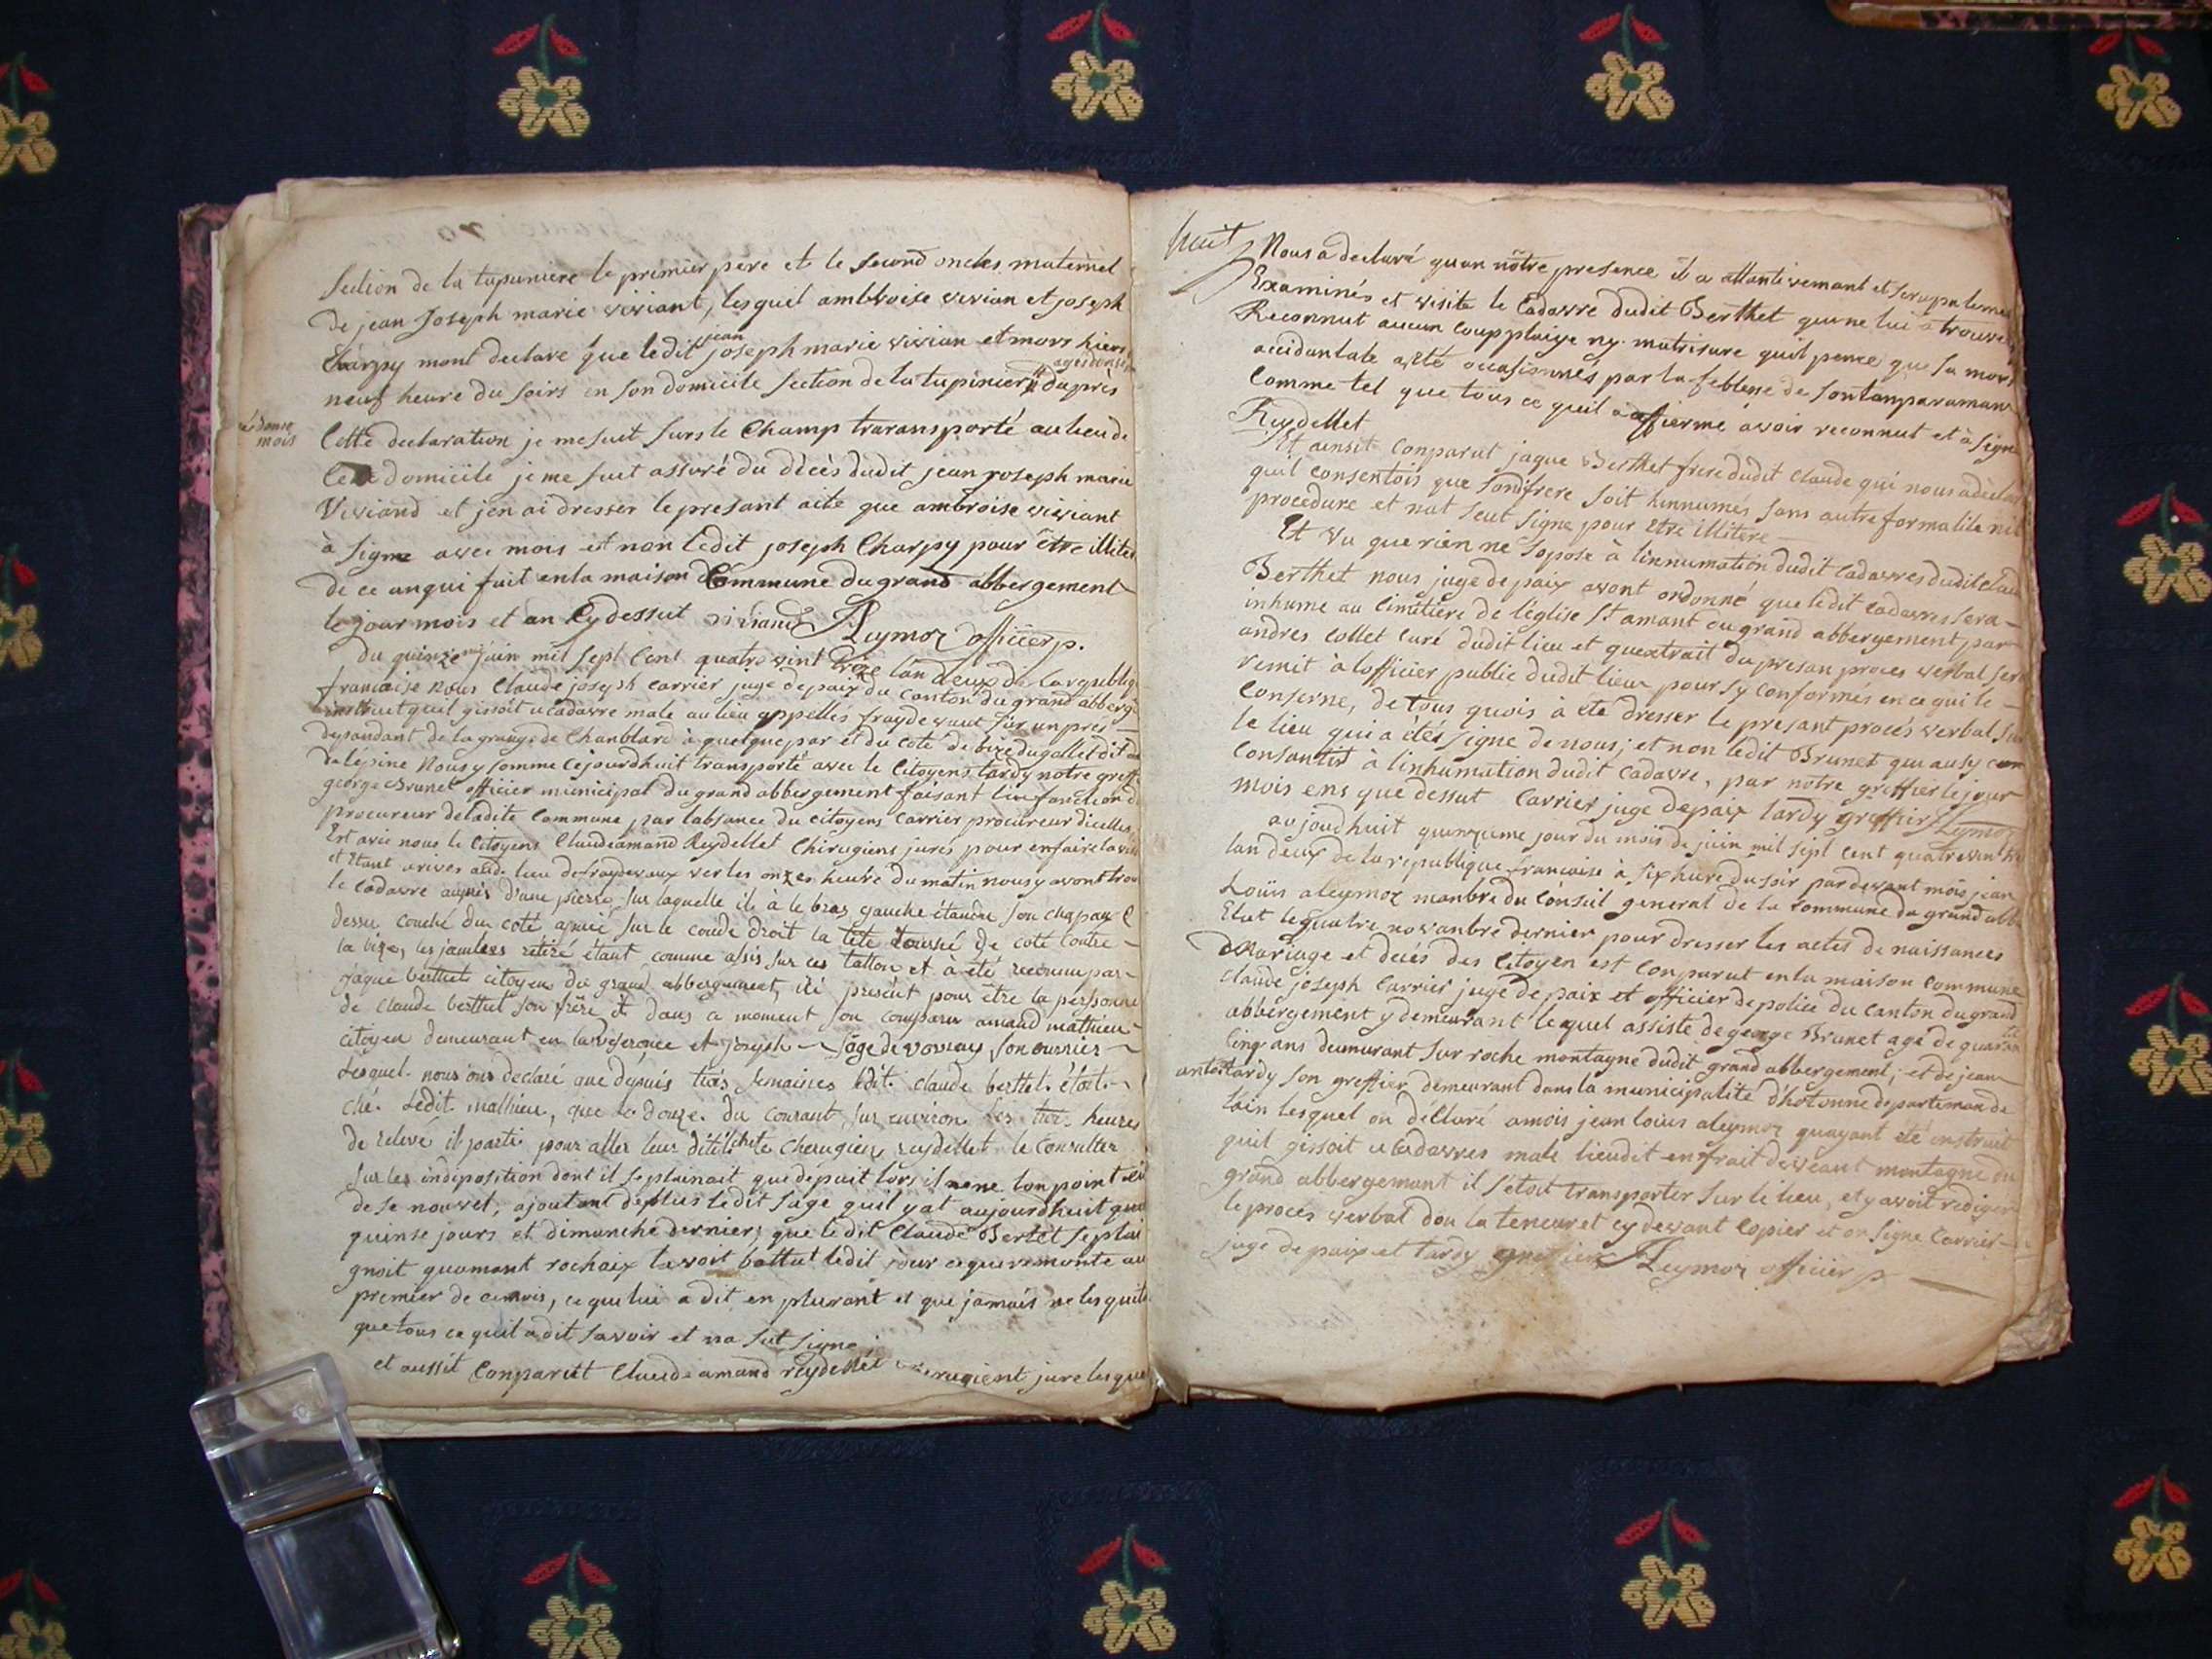 Section de la tupiniere le premier pere et le second oncles maternel
de jean Joseph marie viviant, lesquel ambroise vivian et joseph
Charpy mont declare que ledit jean joseph marie vivian et mors hiers
neuf heure du soirs en son domicile section de la tupinier dapres
agé donse
mois
Cette declaration je me suit surs le Champ traransporté au lieu de
domicile je me suit assuré du décès dudit jean joseph marie
Viviand et jen ai dresser le presant acte que ambroise viviant
à signe avec mois et non ledit joseph Charpy pour être illiter
de ce anqui fait en la maison Commune du grand abbergement
le jour mois et an Cy dessut viviand Aleymoz officier p.
du quinze juin mil sept Cent quatre vint treze lan deux de la republiq
francaise nous Claude joseph Carrier juge de paix du Canton du grand abberg
instruit quil gissoit u cadavre male au lieu appellés frayde vaut sur un prés
depandant de la grange de Chanblard à quelque par et du coté de bize du gollet dit
de lépine Nous y somme cejourdhuit transporté avec le Citoyens tardy notre greff
george Brunet officier municipal du grand abbergement faisant les fonction d
procureur deladite Commune par labsance du Citoyens Carrier procureur dicelles
Est avec nous le Citoyens Claude amand Reydellet Chirugiens jures pour en faire la
et Etant arives aud. lieu de fraydevaux ver les onzes heure du matin nous y avont trou
le Cadavre aupres d'une pierre sur laquelle ile à le bras gauche étandu son chapau
dessu couché du coté apuié sur le coude droit la tete tournée de coté contre
la bize, les jambes rétiré étant comme assis sur ces tallon et à été reconnu par
jaque berthet citoyen du grand abbergement, ici présent pour être la personne
de Claude berthet son frère et dans ce moment son comparu amand mathieu
citoyen demeurant en la véseronce et joseph sage de vovray son ouvrier
Lesquel nous ons declaré que depuis trois semaines ledit claude berthet étoit
ché. Ledit mathieu, que le douze du courant sur environ les troi heures
de relevé il parti pour aller leur dit il chet le Cherugien reydellet le Consulter
sur les indiposition dont il se plainait que depuit lors il nene lon point
de se nouvel, ajoutant de plus ledit sage quil y at aujourdhuit
quinse jours et dimanche dernier, que ledit Claude Bertet se plai
gnoit quamant rochaix lavoit battut ledit jour ce qui remonte au
premier de ce mois, ce que lui a dit en plurant et que jamais ne les quité
que tous ce quil a dit savoir et na sut signe
et aussit Conparutt Claude amand reydellet cherugient jure lesque
huit
Nous a declaré quan nôtre presence il a attantivemant et scrupulemant
Examinés et visite le Cadavre dudit Berthet qui ne lui a trouve
Reconnut aucun coup plaige ny. mutrisure quil pence que sa mors
accidantale a été occasionnés par la feblesse de son tanparaman
Comme tel que tous ce quil a affiermé avoir reconnut et à signe
Reydellet
Et ainsit Conparut jaque Berthet frere dudit Claude qui nous a declar
quil consentois que sondifrere soit hinnumés sans autre formalite ni
procedure et nat seut signe pour etre illitere
Et vu que rien ne sopose à linnumation dudit Cadavres dudit Claud
Berthet nous juge de paix avont ordonné que ledit cadavres sera
inhume au Cimitiere de l'église St amant du grand abbergement, par
andres Collet Curé dudit lieu et quextrait du presan proces verbal sera
remit à lofficier public dudit lieux pour sy conformés en ce qui le
Conserne, de tous quois à été dresser le presant procès verbal sur
le lieu qui a étés signe de nous; et non ledit Brunet qui ausy
Consantit à linhumation dudit Cadavre, par notre greffier le jour
mois ens que dessut Carrier juge de paix tardy greffier Aleymoz
aujoudhuit quinzieme jour du mois de juin mil sept Cent quatre vin
lan deux de la republique francaise à six hure du soir par devant mois jean
Louis aleymoz manbre du Conseil general de la Commune du grand abb
Elut le quatre novanbre dernier pour dresser les actes de naissances
Mariage et decés des Citoyen est Conparut en la maison Commune
Claude joseph Carrier juge de paix et officier de police du Canton du grand
abbergement y demeurant lequel assiste de george Brunet age de quaran
te
Cinq ans deumurant sur roche montagne dudit grand abbergement, et de jean
antoi tardy son greffier demeurant dans la municipalité d'hotonne departeman de
lain lesquel on déClaré a mois jean louis aleymoz quayant été instruit
quil gissoit u Cadavres male lieudit en frait deveaut montagne du
grand abbergemant il s'étoit transporter sur le lieu, et y avoit rediger
le proces verbal don la teneur et cy devant Copier et on signe Carrier
juge de paix et tardy greffier Aleymoz officier p